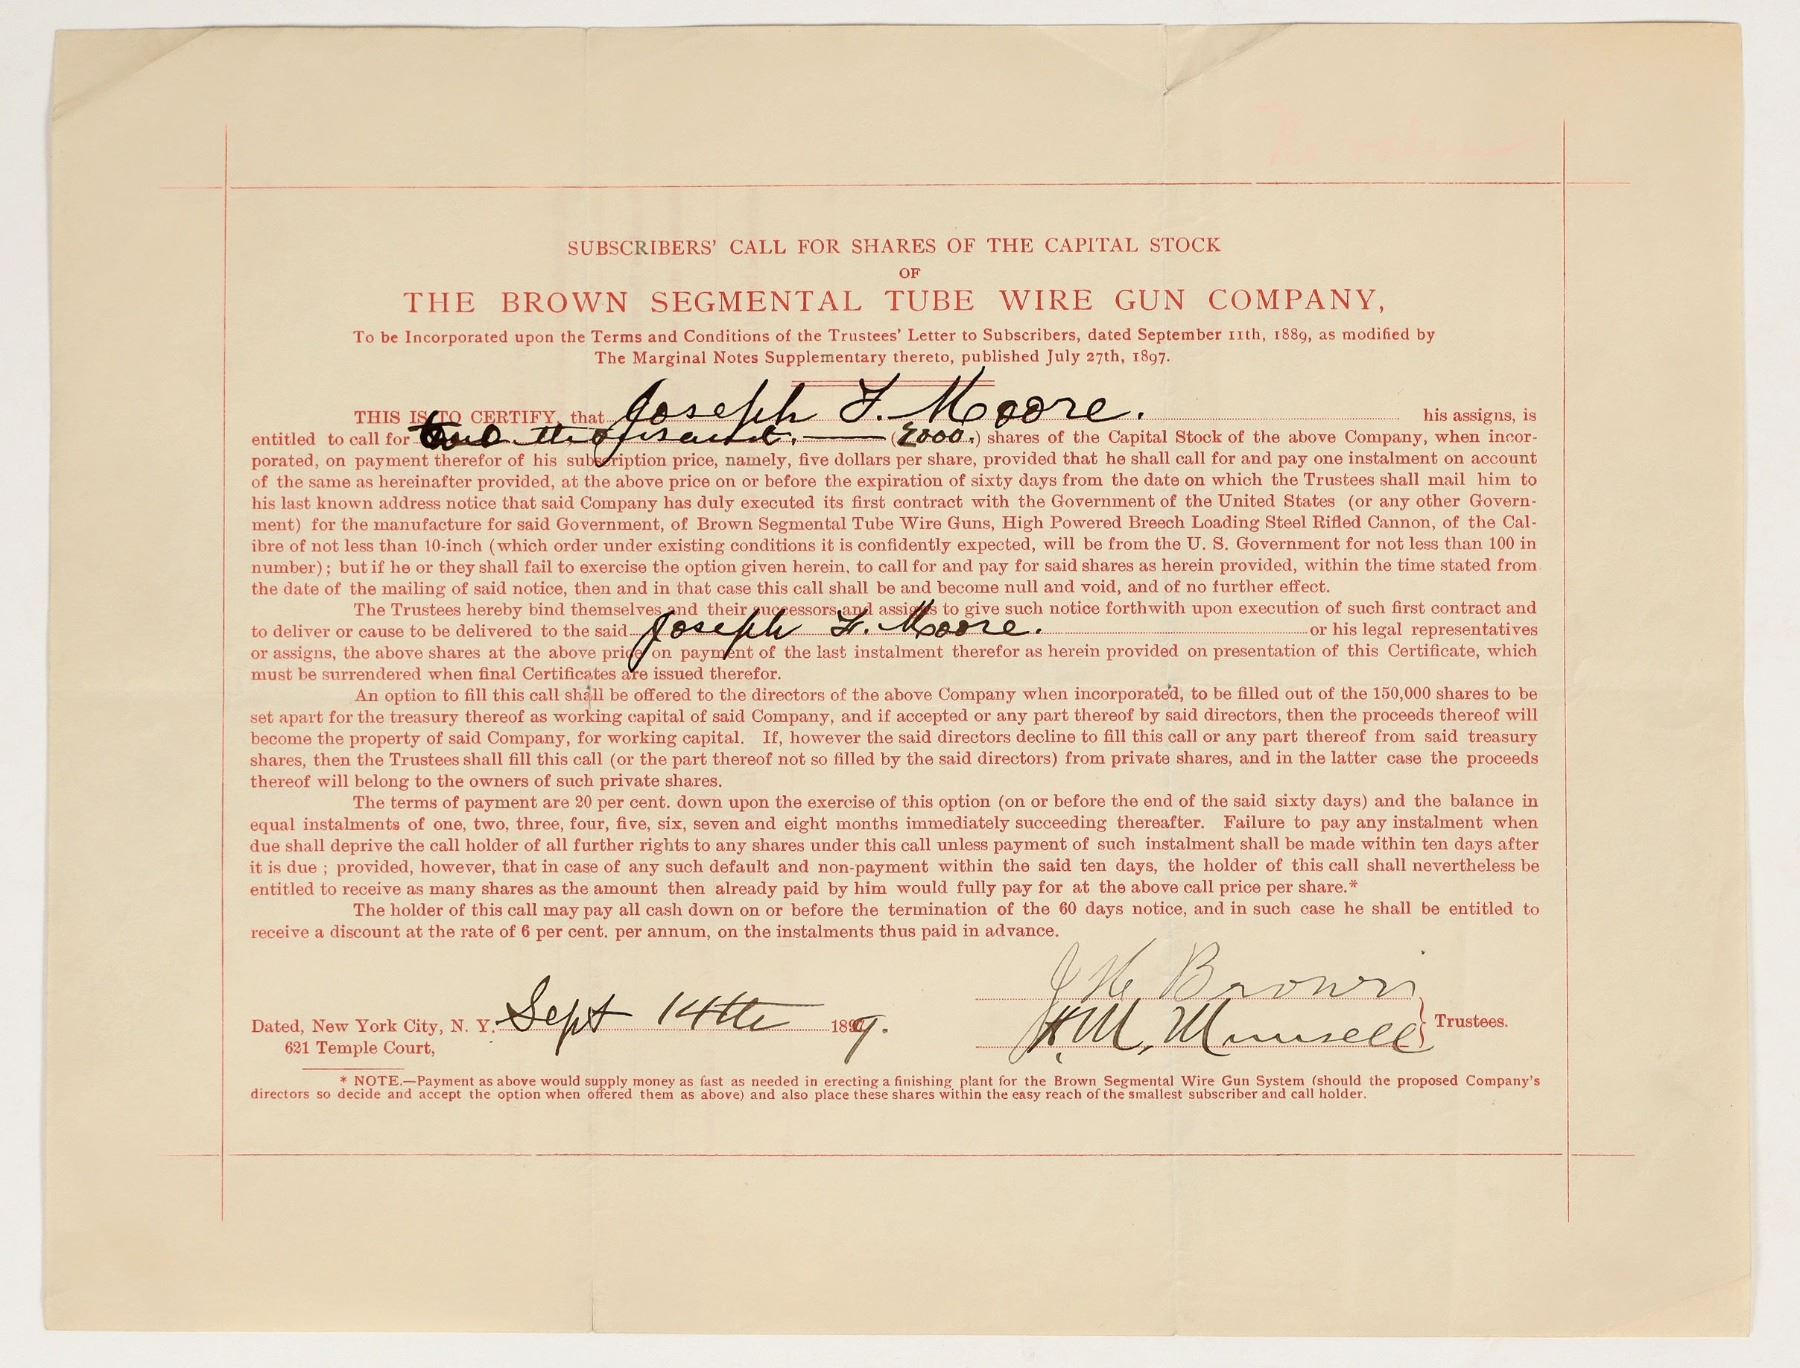 SUBSCRIBERS' CALL FOR SHARES OF THE CAPITAL STOCK
OF
THE BROWN SEGMENTAL TUBE WIRE GUN COMPANY,
To be Incorporated upon the Terms and Conditions of the Trustees' Letter to Subscribers, dated September 11th, 1889, as modified by
The Marginal Notes Supplementary thereto, published July 27th, 1897.
THIS IS TO CERTIFY, that Joseph F. Moore. his assigns, is
entitled to call for two thousand. (2000.) shares of the Capital Stock of the above Company, when incor-
porated, on payment therefor of his subscription price, namely, five dollars per share, provided that he shall call for and pay one instalment on account
of the same as hereinafter provided, at the above price on or before the expiration of sixty days from the date on which the Trustees shall mail him to
his last known address notice that said Company has duly executed its first contract with the Government of the United States (or any other Govern-
ment) for the manufacture for said Government, of Brown Segmental Tube Wire Guns, High Powered Breech Loading Steel Rifled Cannon, of the Cal-
ibre of not less than 10-inch (which order under existing conditions it is confidently expected, will be from the U. S. Government for not less than 100 in
number); but if he or they shall fail to exercise the option given herein, to call for and pay for said shares as herein provided, within the time stated from
the date of the mailing of said notice, then and in that case this call shall be and become null and void, and of no further effect.
The Trustees hereby bind themselves and their successors and assigns to give such notice forthwith upon execution of such first contract and
to deliver or cause to be delivered to the said Joseph F. Moore. or his legal representatives
or assigns, the above shares at the above price on payment of the last instalment therefor as herein provided on presentation of this Certificate, which
must be surrendered when final Certificates are issued therefor.
An option to fill this call shall be offered to the directors of the above Company when incorporated, to be filled out of the 150,000 shares to be
set apart for the treasury thereof as working capital of said Company, and if accepted or any part thereof by said directors, then the proceeds thereof will
become the property of said Company, for working capital. If, however the said directors decline to fill this call or any part thereof from said treasury
shares, then the Trustees shall fill this call (or the part thereof not so filled by the said directors) from private shares, and in the latter case the proceeds
thereof will belong to the owners of such private shares.
The terms of payment are 20 per cent. down upon the exercise of this option (on or before the end of the said sixty days) and the balance in
equal instalments of one, two, three, four, five, six, seven and eight months immediately succeeding thereafter. Failure to pay any instalment when
due shall deprive the call holder of all further rights to any shares under this call unless payment of such instalment shall be made within ten days after
it is due ; provided, however, that in case of any such default and non-payment within the said ten days, the holder of this call shall nevertheless be
entitled to receive as many shares as the amount then already paid by him would fully pay for at the above call price per share.*
The holder of this call may pay all cash down on or before the termination of the 60 days notice, and in such case he shall be entitled to
receive a discount at the rate of 6 per cent. per annum, on the instalments thus paid in advance.
J H Brown
Dated, New York City, N. Y. Sept 14th 1899.
H. M. Munsell Trustees.
621 Temple Court,
* NOTE.—Payment as above would supply money as fast as needed in erecting a finishing plant for the Brown Segmental Wire Gun System (should the proposed Company's
directors so decide and accept the option when offered them as above) and also place these shares within the easy reach of the smallest subscriber and call holder.